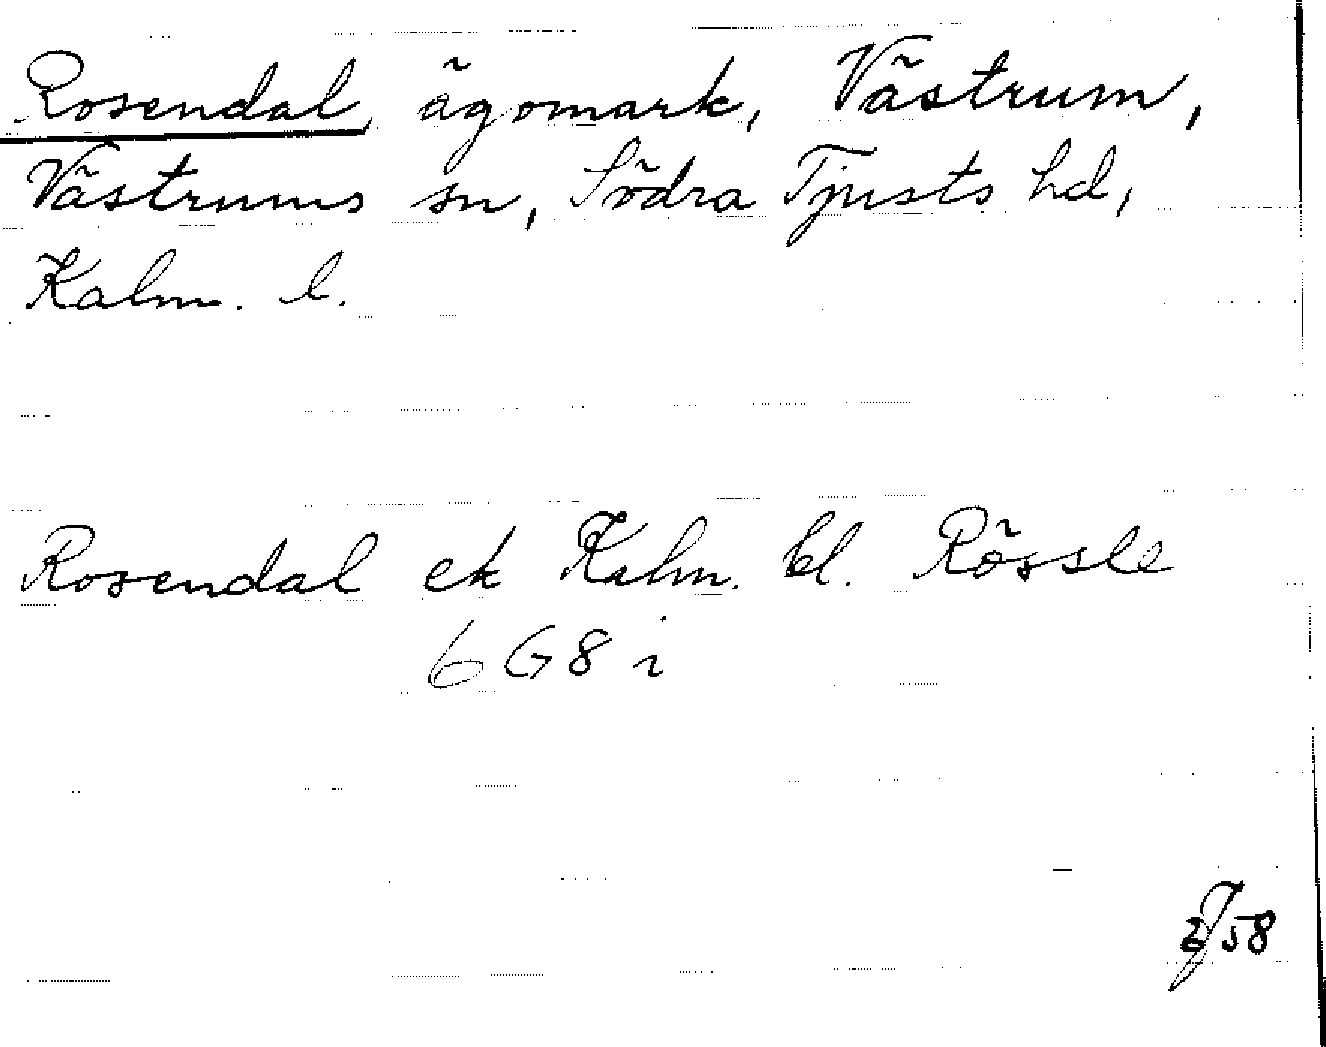 Rosendal, ägomark, Västrum,
Västrums sn, Södra Tjusts hd,
Kalm. l.
Rosendal ek Kalm. bl. Rössle
6 G 8 i
58